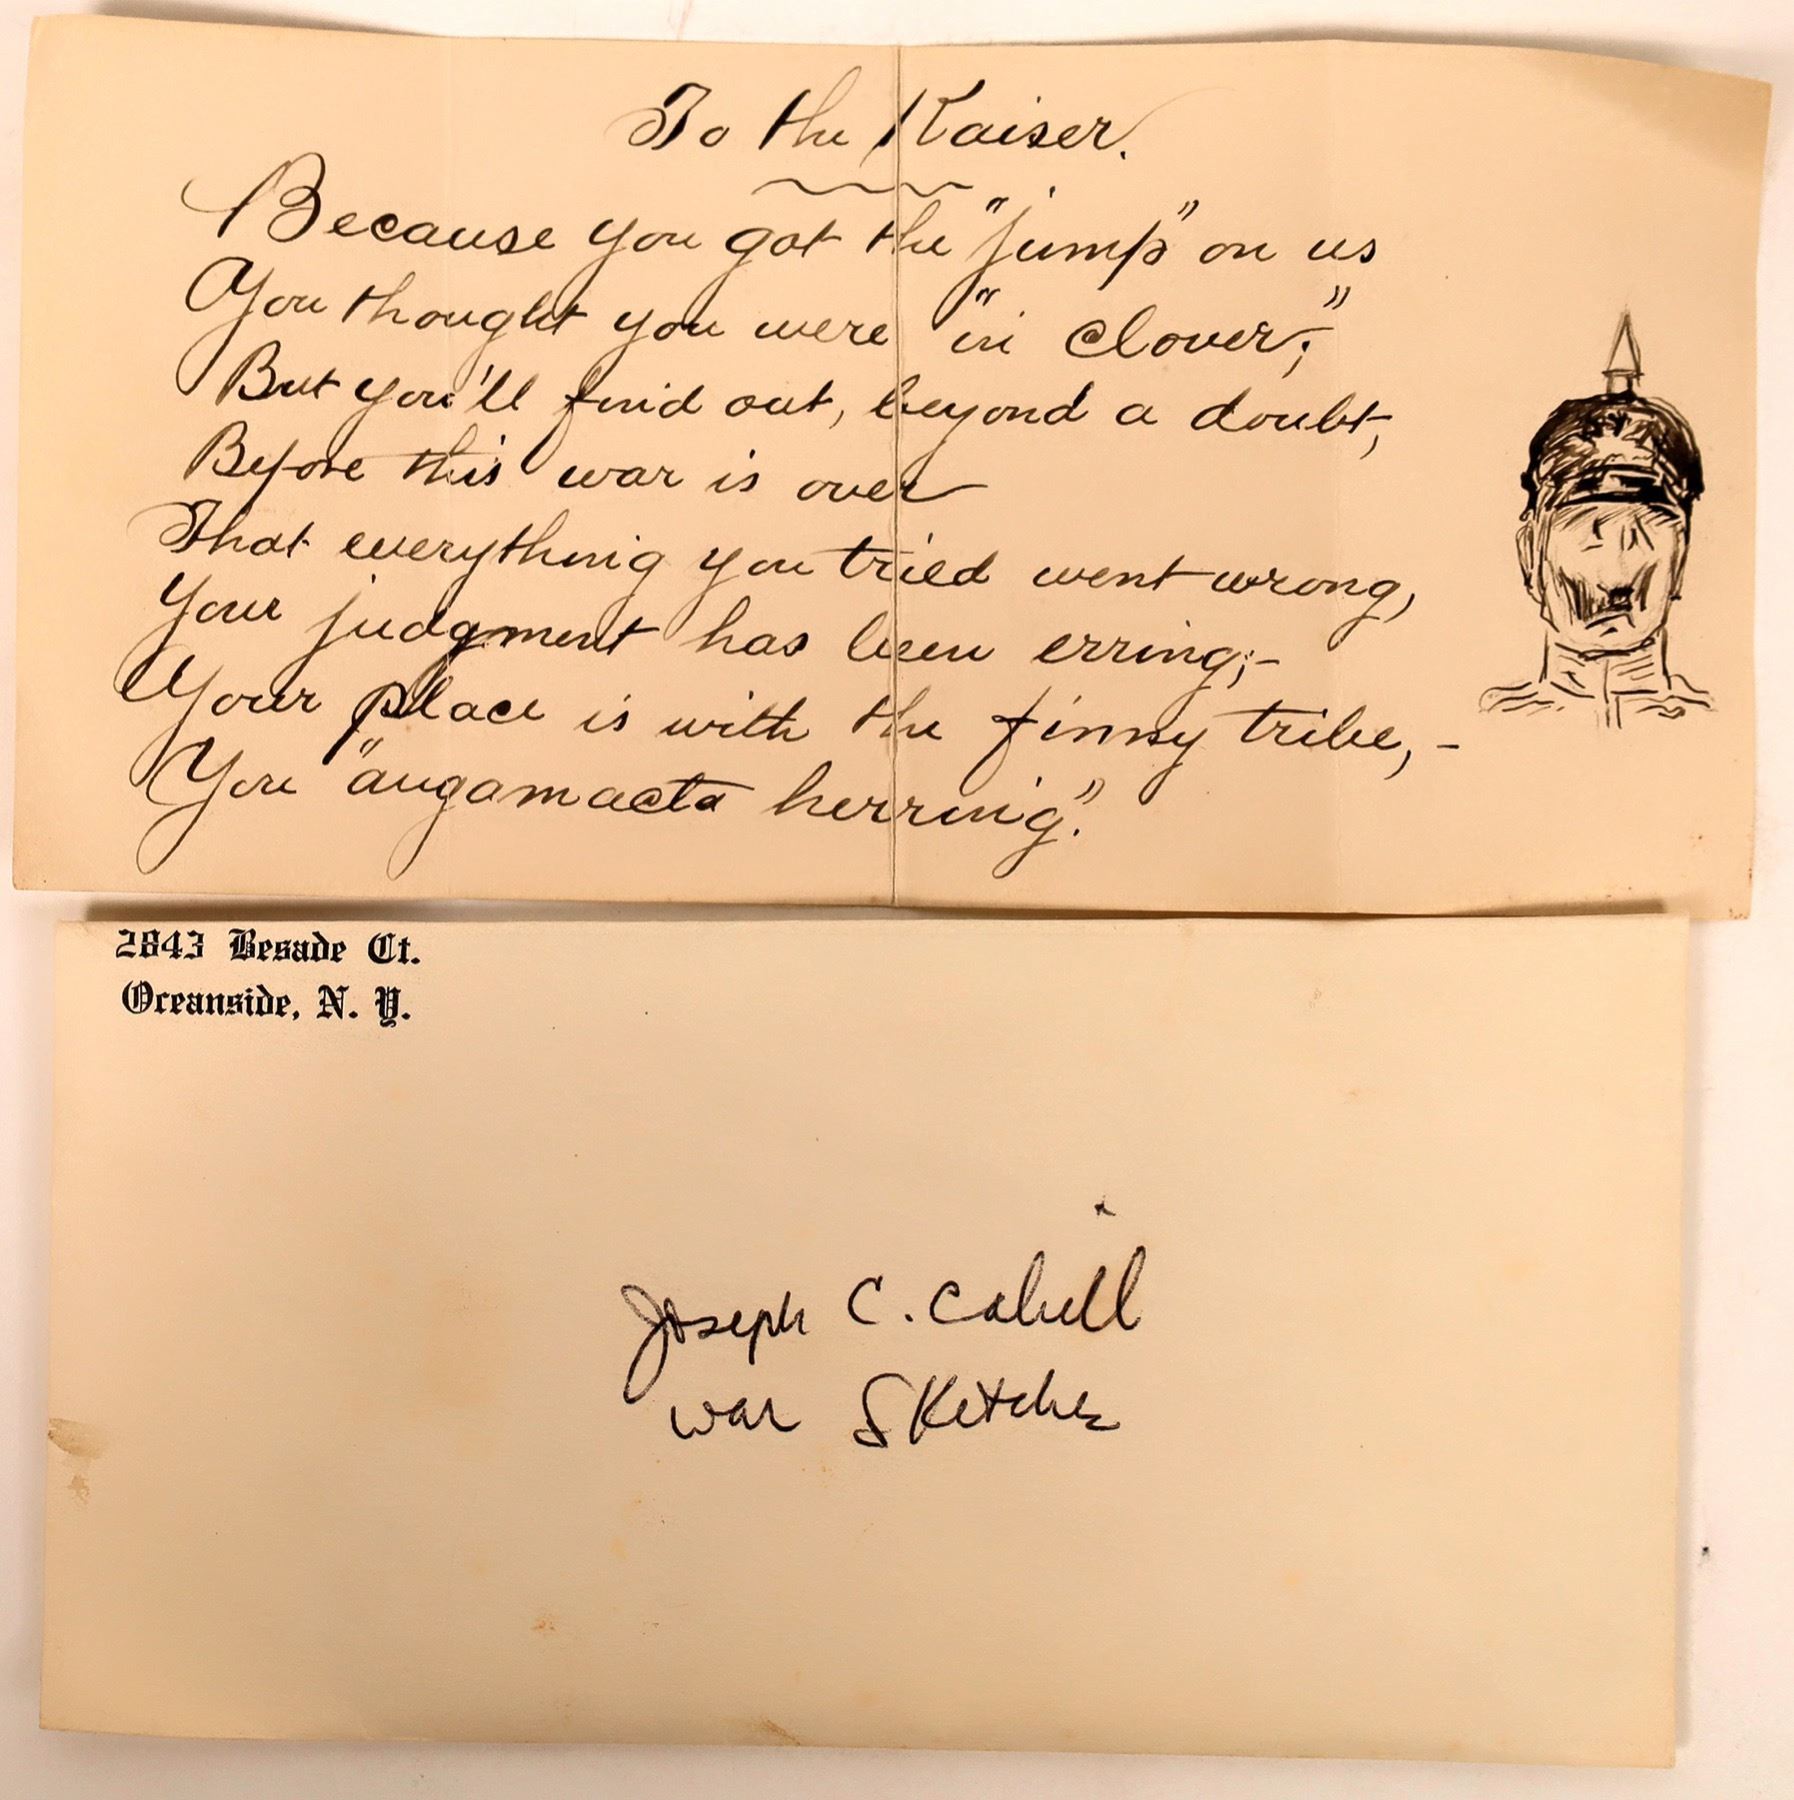 To the Kaiser.
Because you got the "jump" on us
You thought you were "in clover;"
But you'll find out, beyond a doubt,
Before this war is over
That everything you tried went wrong,
Your judgment has been erring;-
Your place is with the finny tribe,-
You "augamacta herring".
2843 Besade Ct.
Oceanside, N. Y.
Joseph C. Cahill
war Sketches